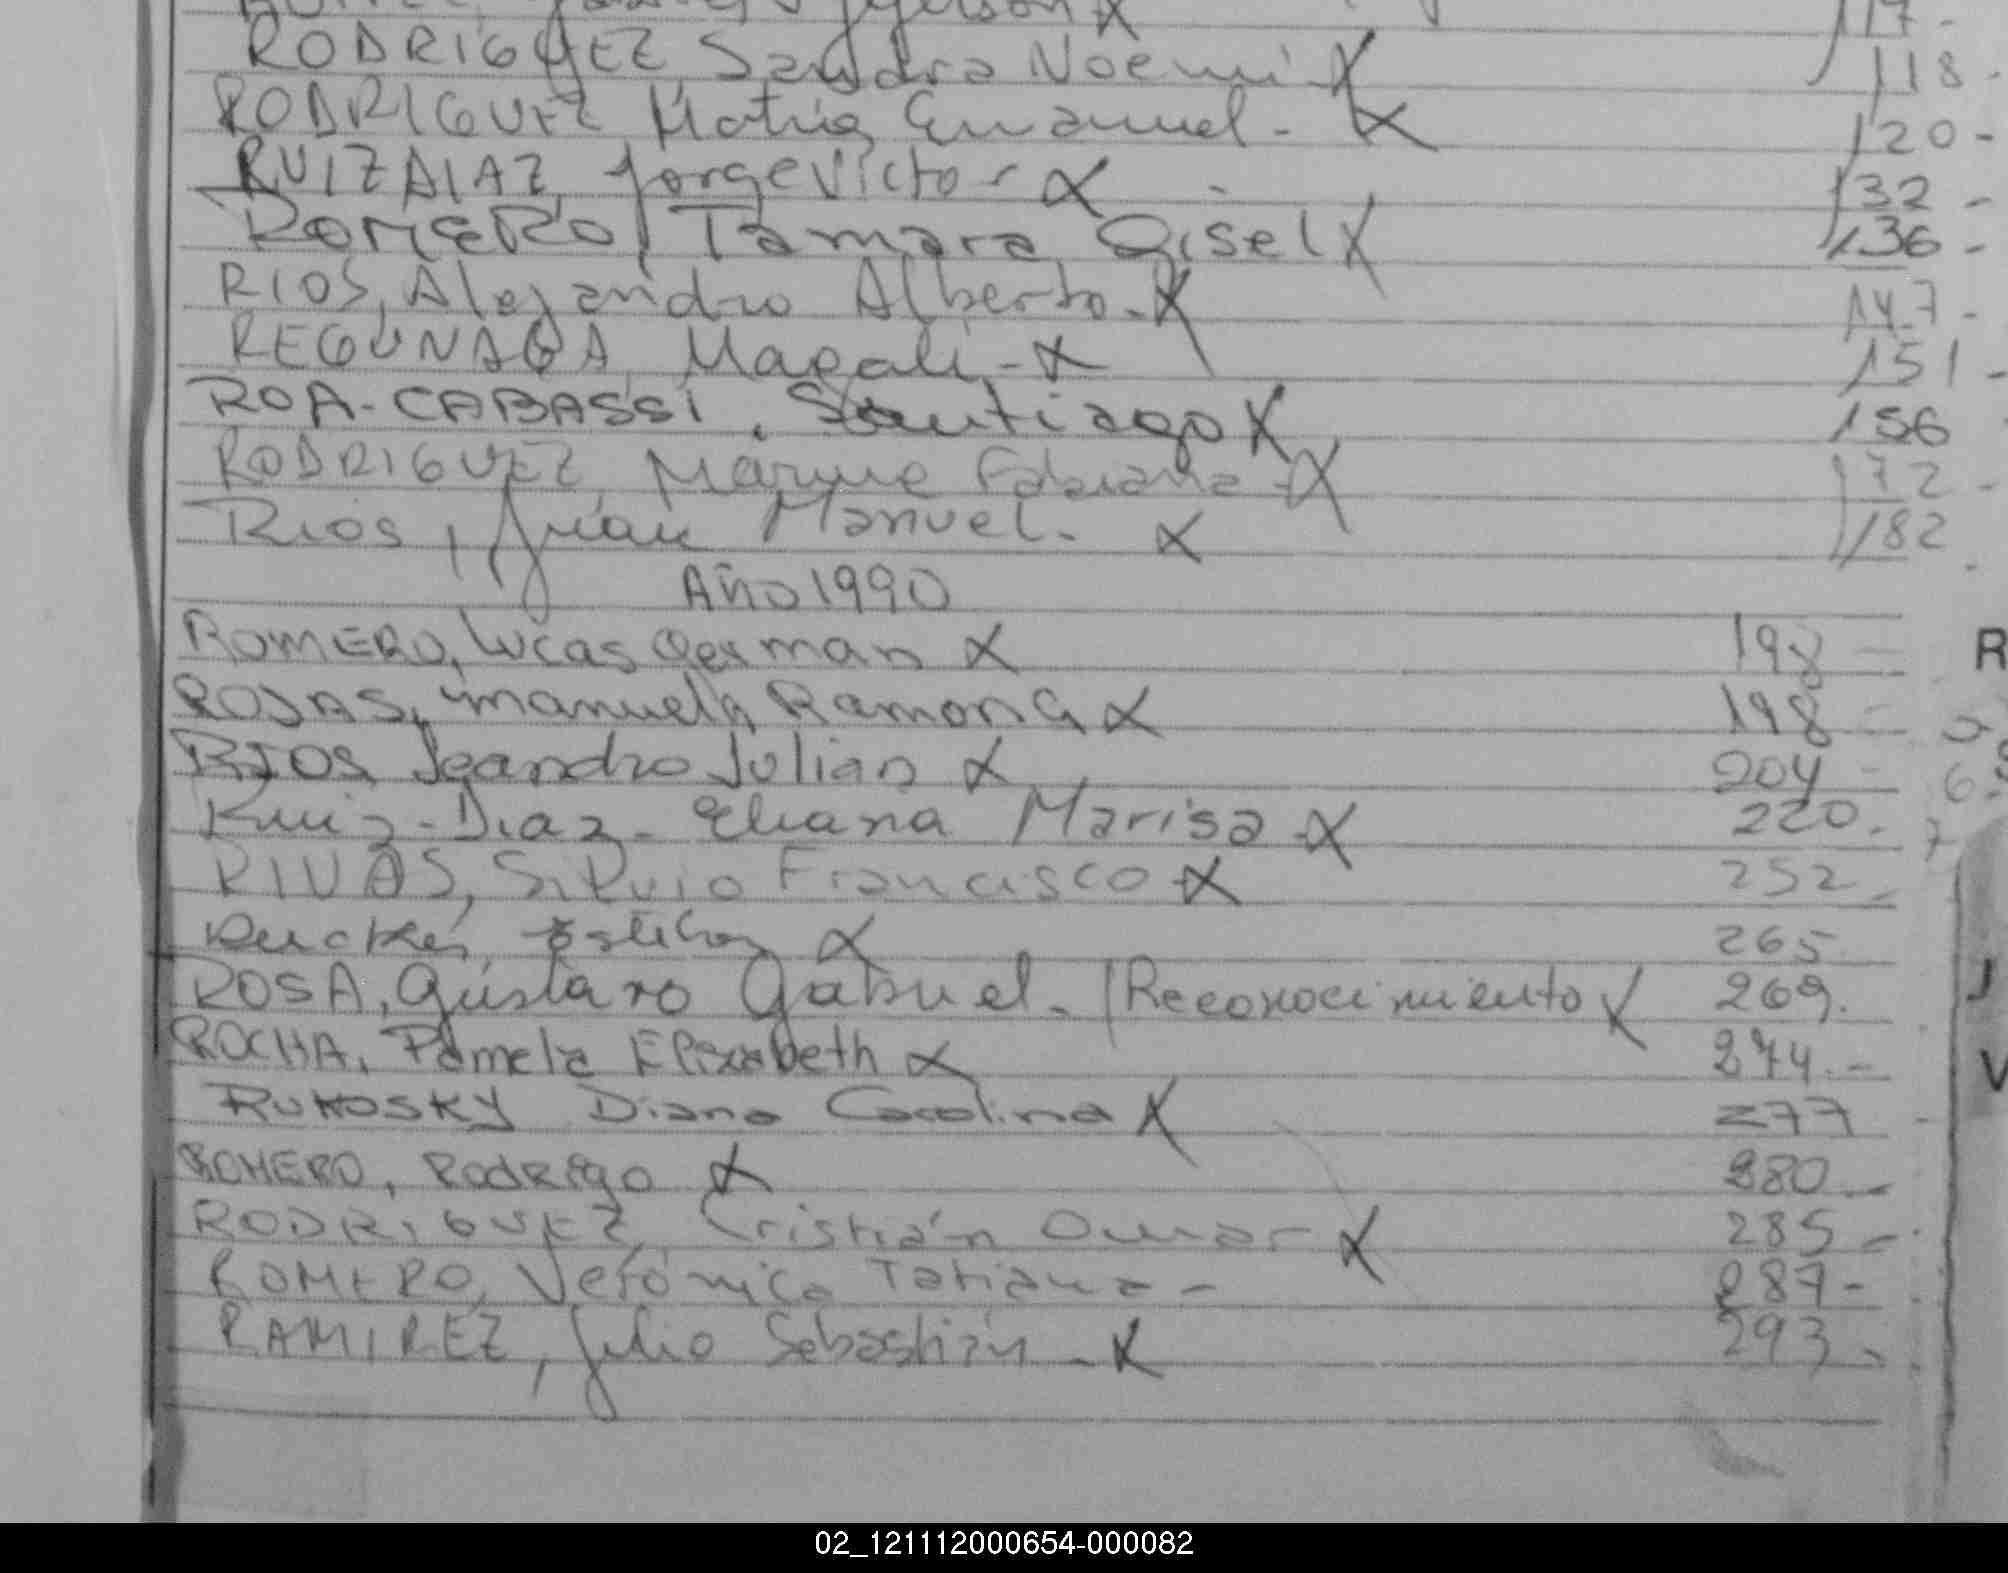 117-
RODRIGUEZ Sandra Noemi X 118-
RODRIGUEZ Matias Emanuel - X 120-
RUIZ DIAZ, Jorge Victor X 132-
ROMERO, Tamara Gisel X 136-
RIOS, Alejandro Alberto - X 147-
REGUNAGA, Magali - X 151-
ROA-CABASSI, Santiago X 156
RODRIGUEZ, Fabiana - X 172-
Rios, Juan Manuel - X 182
Año 1990
ROMERO, Lucas German X 198-
ROJAS, Manuela Ramona X 198-
RIOS Leandro Julian X 204-
Ruiz-Diaz - Eliana Marisa - X 220.
RIVAS, Silvio Francisco - X 252-
X 265
ROSA, Gustavo Gabriel - (Reconocimiento X 269.
ROCHA, Pamela Elizabeth X 274.-
RUKOSKY Diana Carolina X 277
ROMERO, Rodrigo X 280-
RODRIGUEZ, Cristián Omar X 285-
ROMERO, Verónica Tatiana - 287-
RAMIREZ, Julio Sebastián - X 293-
R
J
V
02_121112000654-000082